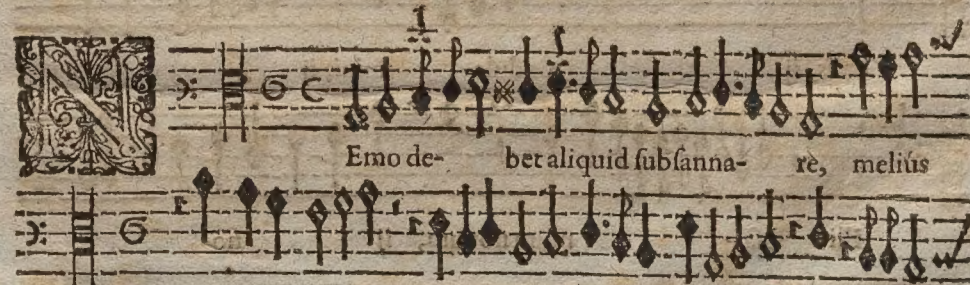 N
Emo de- bet aliquid ſubſanna- re, melius